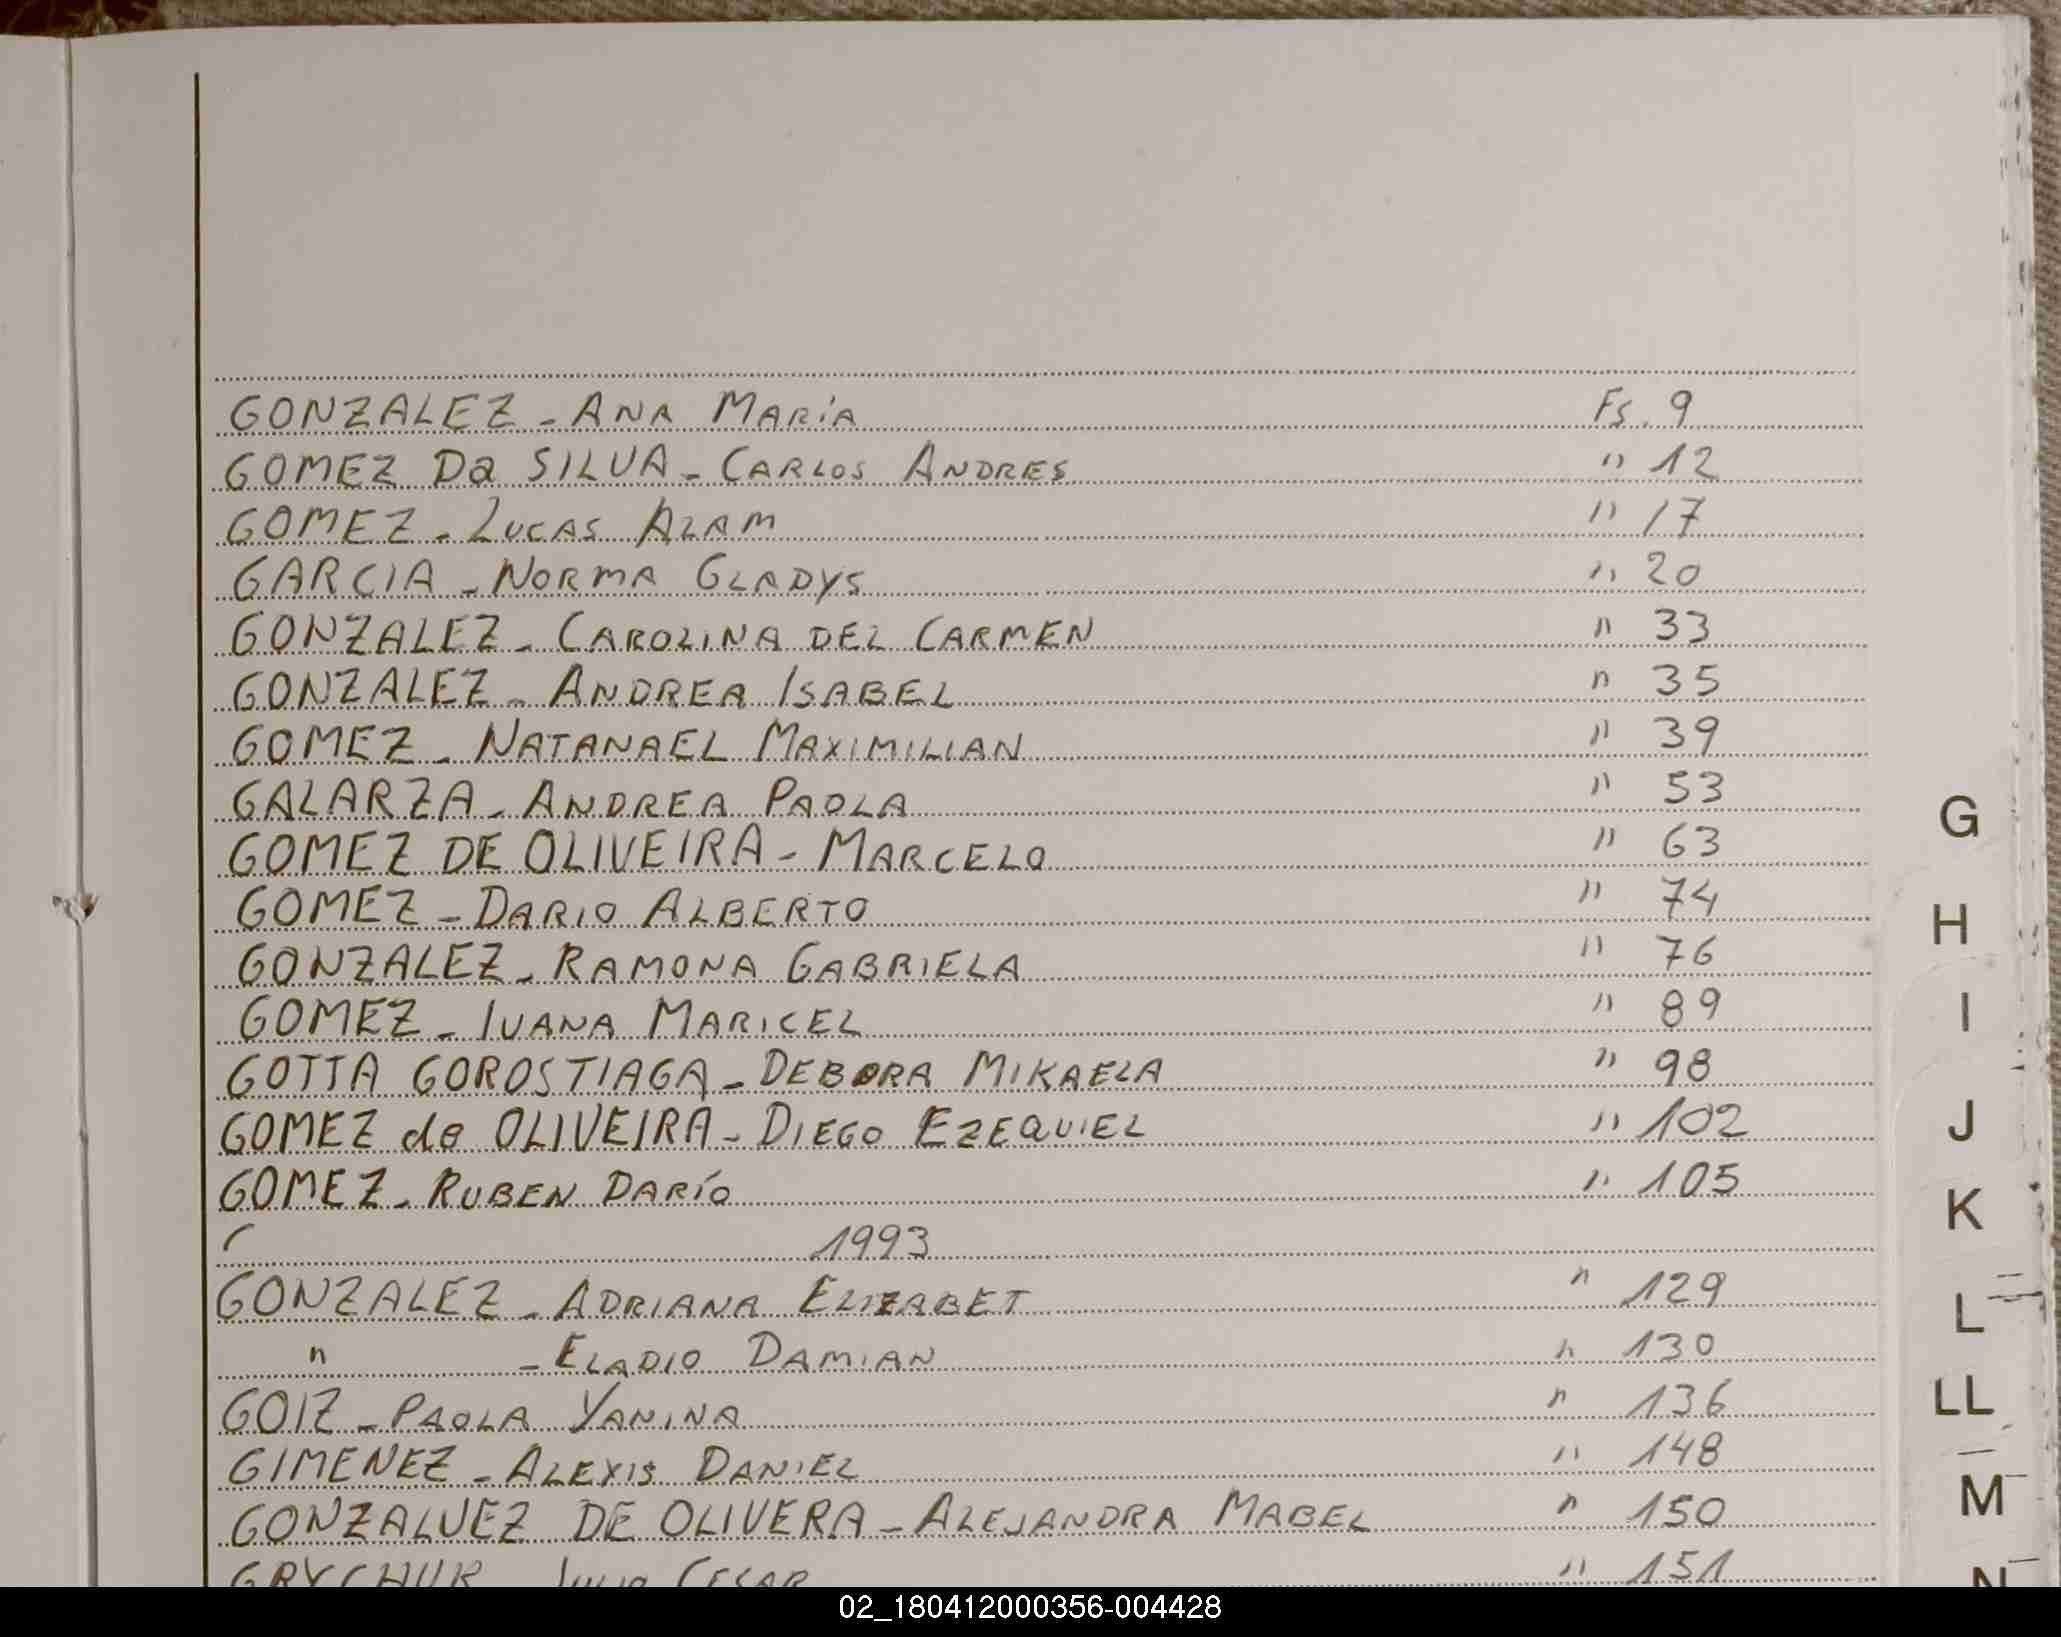 GONZALEZ - ANA MARíA Fs. 9
GOMEZ Da SILVA - CARLOS ANDRES " 12
GOMEZ - LUCAS ALAM " 17
GARCIA - NORMA GLADYS " 20
GONZALEZ - CAROLINA DEL CARMEN " 33
GONZALEZ - ANDREA ISABEL " 35
GOMEZ - NATANAEL MAXIMILIAN " 39
GALARZA - ANDREA PAOLA " 53
GOMEZ DE OLIVEIRA - MARCELO " 63
GOMEZ - DARIO ALBERTO " 74
GONZALEZ - RAMONA GABRIELA " 76
GOMEZ - IVANA MARICEL " 89
GOTTA GOROSTIAGA - DEBORA MIKAELA " 98
GOMEZ de OLIVEIRA - DIEGO EZEQUIEL " 102
GOMEZ - RUBEN DARíO " 105
1993
GONZALEZ - ADRIANA ELIZABET " 129
" - ELADIO DAMIAN " 130
GOIZ - PAOLA YANINA " 136
GIMENEZ - ALEXIS DANIEL " 148
GONZALVEZ DE OLIVERA - ALEJANDRA MABEL " 150
GRYCHUK JULIO CESAR " 151
G
H
I
J
K
L
LL
M
N
02_180412000356-004428